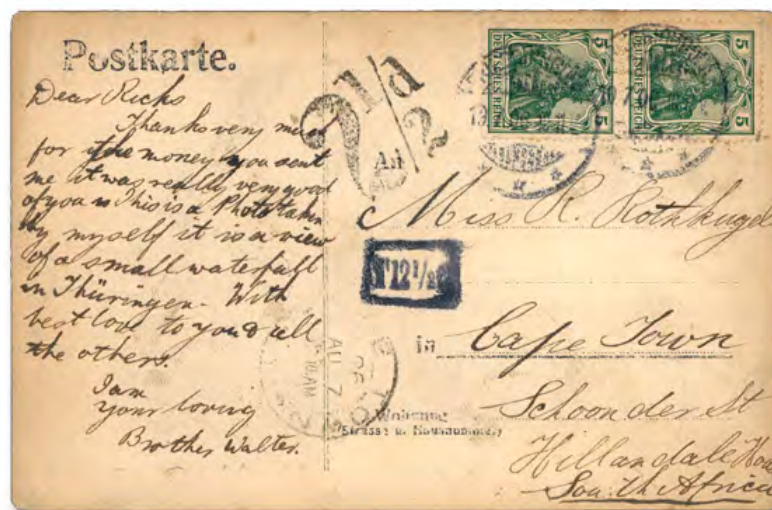 Postkarte.
Dear Richs
Thanks very much
for the money you sent
me it was really very good
of you This is a Photo taken
by myself it is a view
of a small waterfall
in Thüringen. With
best love to you & all
the others.
I am
your loving
Brother Walter.
2 1/2 d
An
DEUTSCHES REICH
5
5
DEUTSCHES REICH
5
5
Miss R. Rothkugel
T 12 1/2
in Cape Town
AU 7
10 AM
Wohnung
(Strasse u. Hausnummer)
Schoonder St
Hillandale
South Africa